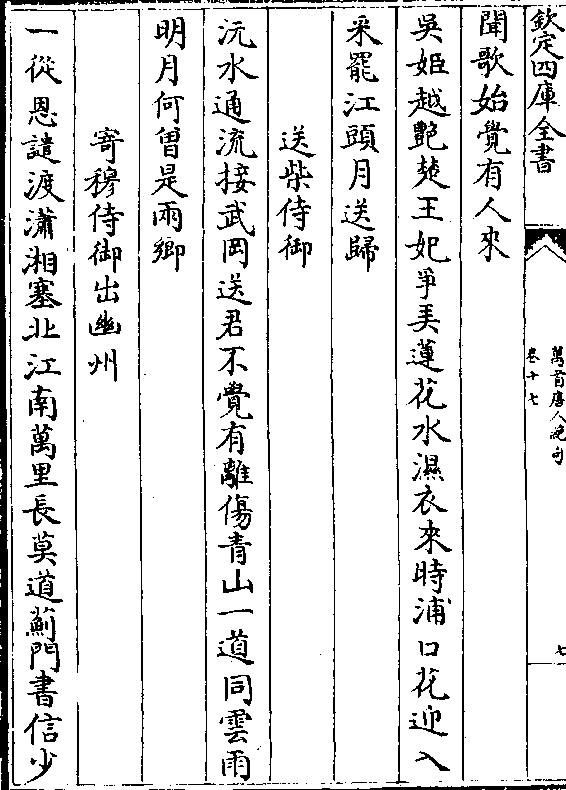 欽定四庫全書
萬首唐人絶句
卷十七
七
聞歌始覺有人來
吳姬越艷楚王妃爭美蓮花水濕衣來時浦口花迎入
采罷江頭月送歸
送柴侍御
沅水通流接武岡送君不覺有離傷青山一道同雲雨
明月何曽是兩鄉
寄穆侍御出幽州
一從恩譴渡瀟湘塞北江南萬里長莫道薊門書信少